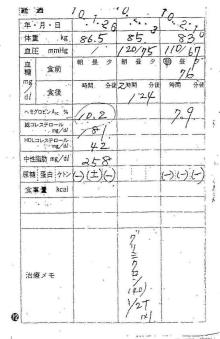 経過
年・月・日
体重 kg 86.5 85 83
血圧 mmHg / 120/75 110/67
血糖 mg/dl 食前 朝 昼 夕 朝 昼 夕 朝 昼 夕 76
食後 時間 分後 2時間 分後 時間 分後 124
ヘモグロビンA1C % 10.2 7.9
総コレステロール mg/dl 181
HDLコレステロール mg/dl 42
中性脂肪 mg/dl 258
尿糖 蛋白 ケトン (-) (±) (-) ( ) ( ) ( ) (-) (-) (-)
食事量 kcal
治療メモ
1/2T
1x1
12